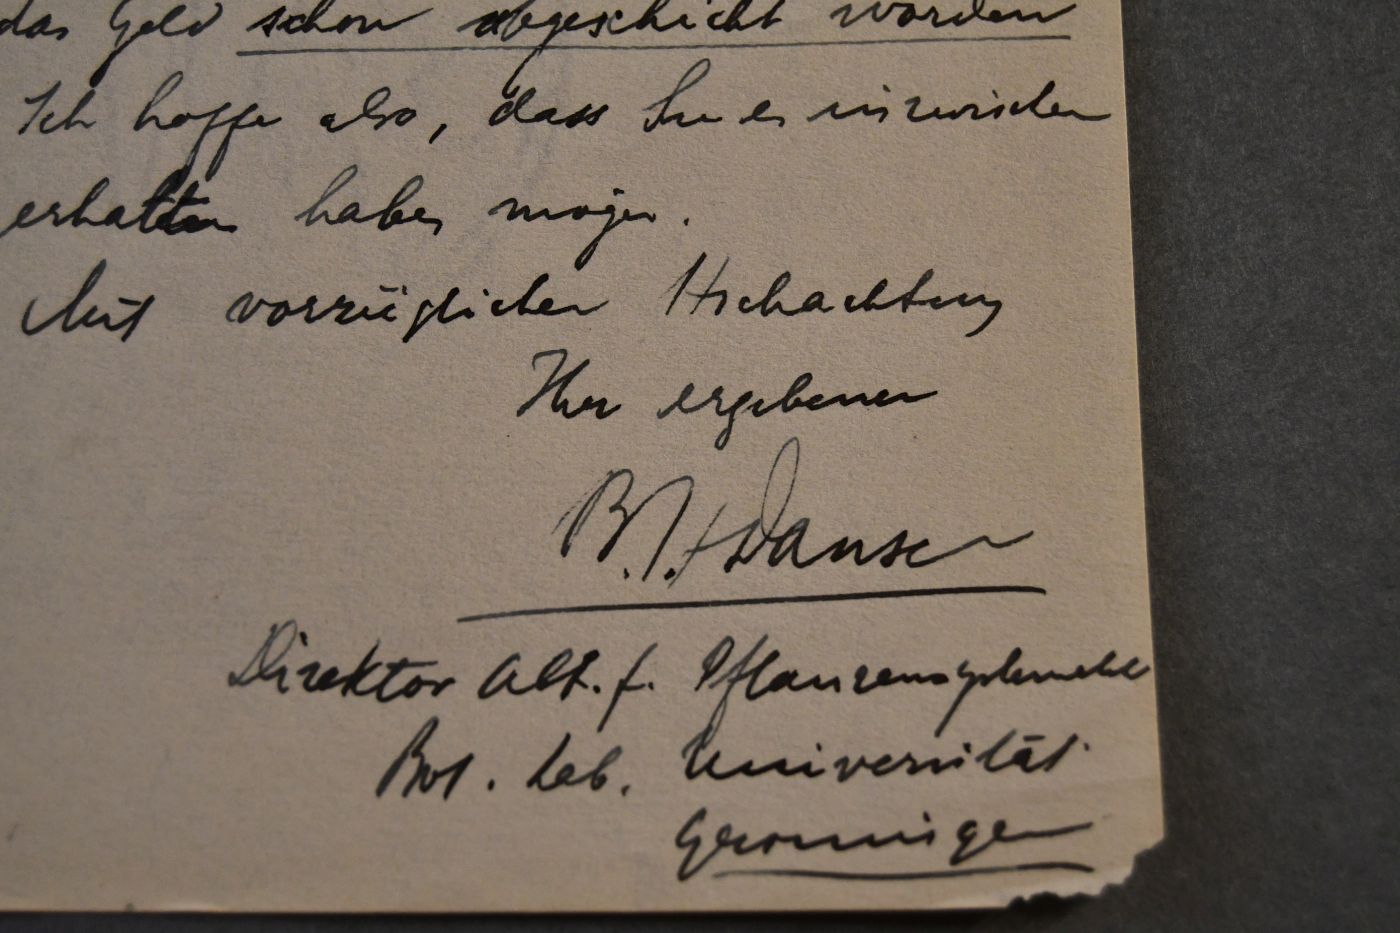 das Geld schon abgeschickt worden
Ich hoffe also, dass Sie es inzwischen
erhalten haben mögen.
Mit vorzüglicher Hochachtung
Ihr ergebener
B.H. Danser
Direktor Abt. f. Pflanzensystematik
Bot. Lab. Universität
Groningen